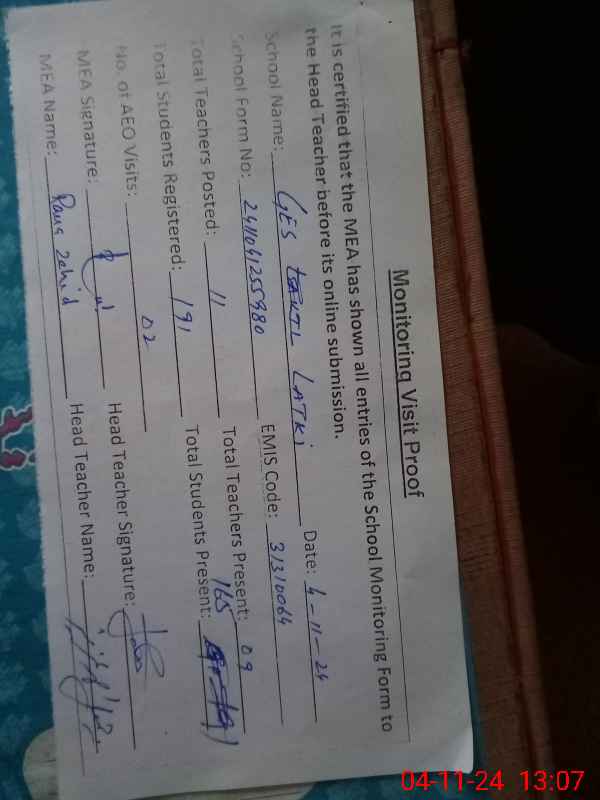 Monitoring Visit Proof
It is certified that the MEA has shown all entries of the School Monitoring Form to
the Head Teacher before its online submission.
School Name: GES LATKI Date: 4-11-24
School Form No: EMIS Code: 31310064
Total Teachers Posted: 11 Total Teachers Present: 09
Total Students Registered: 191 Total Students Present: 165
No. of AEO Visits: 02
MEA Signature: Head Teacher Signature:
MEA Name: Rana Zahid Head Teacher Name:
04-11-24 13:07